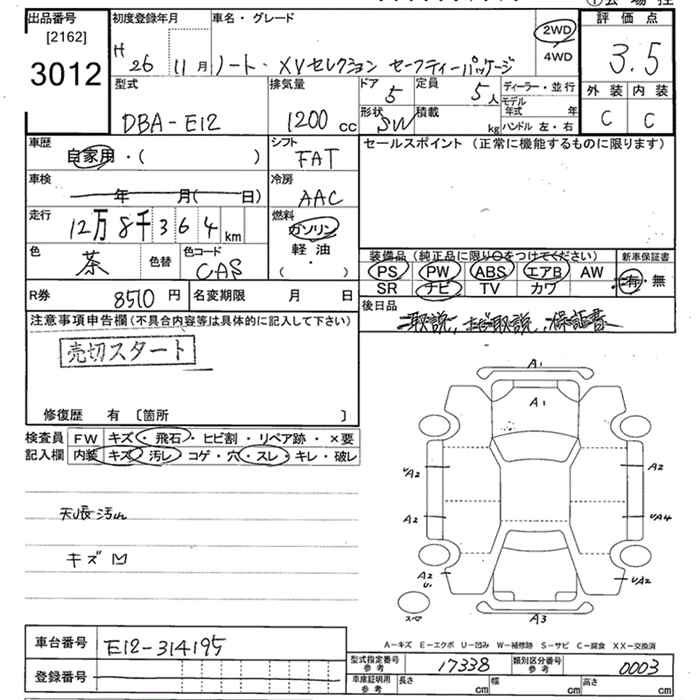 出品番号 初度登録年月 車名・グレード 評価点
[2162] H 26 11月 ノート・XVセレクション セーフティーパッケージ 2WD 3.5
3012 4WD
型式 排気量 ドア 定員 ディーラー・並行 外装 内装
DBA-E12 1200 cc 5 5人 モデル年式 年 C C
形状 積載 ハンドル 左・右
SW kg
車歴 シフト セールスポイント(正常に機能するものに限ります)
自家用・( ) FAT
車検 冷房
年 月(日) AAC
走行 燃料
12万8千364km ガソリン
色 色替 色コード 軽油 装備品(純正品に限り○をつけてください) 新車保証書
茶 CAS ( ) PS PW ABS エアB AW 有・無
R券 8510円 名変期限 月 日 SR ナビ TV カワ
後日品
注意事項申告欄(不具合内容等は具体的に記入して下さい) 取説, ナビ取説, 保証書
売切スタート
修復歴 有 〔箇所 〕
検査員 FW キズ・飛石・ヒビ割・リペア跡・×要
記入欄 内装 キズ・汚レ・コゲ・穴・スレ・キレ・破レ
A1
A1
UA2 A2
A2 UA4
天張汚れ
キズ凹
A2 U1 UA2
スペア A3
A-キズ E-エクボ U-凹み W-補修跡 S-サビ C-腐食 XX-交換済
車台番号 E12-314195
登録番号
型式指定番号参考 17338 類別区分番号参考 0003
車庫証明用参考 長さ cm 幅 cm 高さ cm